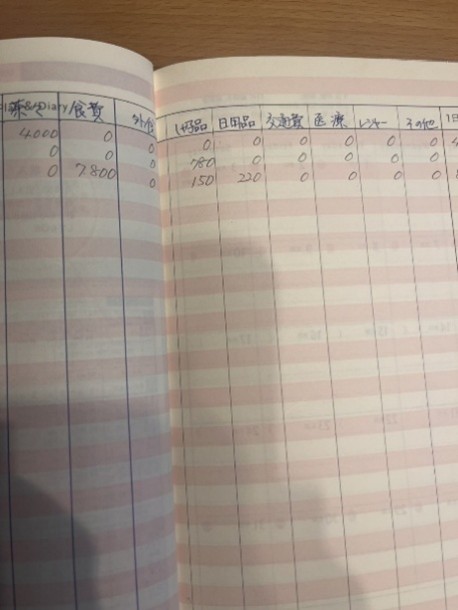 &Diary 食費 外食 し好品 日用品 交通費 医療 レジャー その他 1日
4000 0 0 0 0 0 0 0 0
0 0 0 780 0 0 0 0 0
0 7800 0 150 220 0 0 0 0